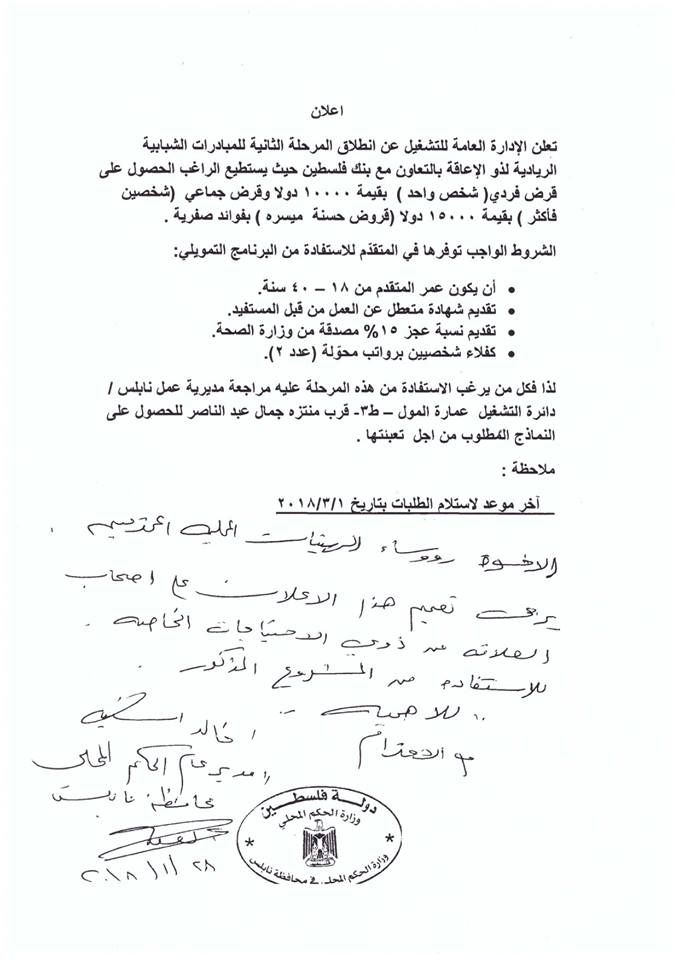 اعلان
تعلن الإدارة العامة للتشغيل عن انطلاق المرحلة الثانية للمبادرات الشبابية
الريادية لذو الإعاقة بالتعاون مع بنك فلسطين حيث يستطيع الراغب الحصول على
قرض فردي( شخص واحد ) بقيمة ١٠٠٠٠ دولا وقرض جماعي (شخصين
فأكثر ) بقيمة ١٥٠٠٠ دولا (قروض حسنة ميسره ) بفوائد صفرية .
الشروط الواجب توفرها في المتقدّم للاستفادة من البرنامج التمويلي:
• أن يكون عمر المتقدم من ١٨ – ٤٠ سنة.
• تقديم شهادة متعطل عن العمل من قبل المستفيد.
• تقديم نسبة عجز ١٥% مصدقة من وزارة الصحة.
• كفلاء شخصيين برواتب محوّلة (عدد ٢).
لذا فكل من يرغب الاستفادة من هذه المرحلة عليه مراجعة مديرية عمل نابلس /
دائرة التشغيل عمارة المول – ط٣- قرب منتزه جمال عبد الناصر للحصول على
النماذج المطلوب من اجل تعبئتها .
ملاحظة :
آخر موعد لاستلام الطلبات بتاريخ ٢٠١٨/٣/١
الاخوة رؤساء الهيئات المحلية المحترمين .
يرجى تعميم هذا الاعلان على اصحاب
العلاقة من ذوي الاحتياجات الخاصة .
للاستفادة من المشروع المذكور .
للاهمية ..
مع الاحترام
خالد
مدير عام الحكم المحلي
محافظة نابلس
٢٠١٨/١/٢٨
دولة فلسطين
وزارة الحكم المحلي
وزارة الحكم المحلي في محافظة نابلس